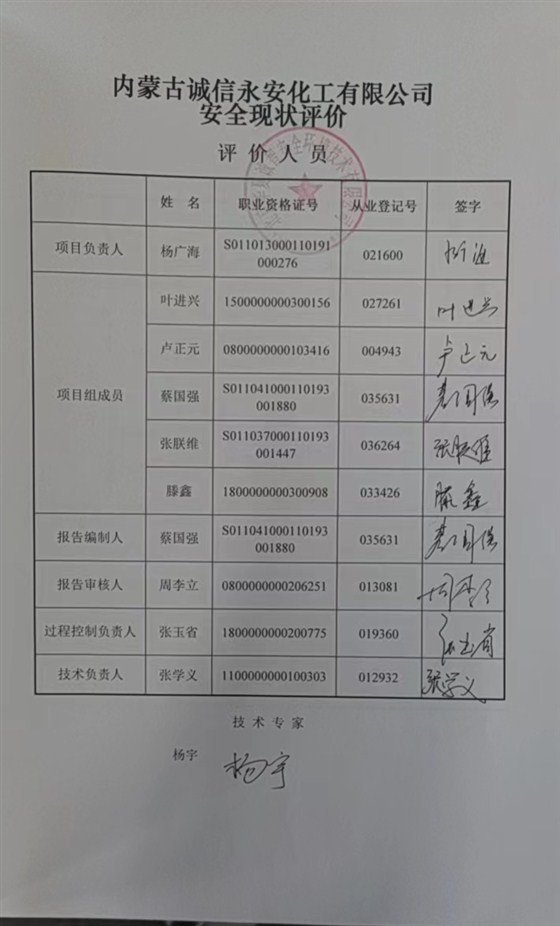 内蒙古诚信永安化工有限公司
安全现状评价
评价人员
姓 名 职业资格证号 从业登记号 签字
项目负责人 杨广海 S011013000110191000276 021600
项目组成员 叶进兴 1500000000300156 027261 叶进兴
卢正元 0800000000103416 004943 卢正元
蔡国强 S011041000110193001880 035631 蔡国强
张朕维 S011037000110193001447 036264 张朕维
滕鑫 1800000000300908 033426 滕鑫
报告编制人 蔡国强 S011041000110193001880 035631 蔡国强
报告审核人 周李立 0800000000206251 013081 周李立
过程控制负责人 张玉省 1800000000200775 019360 张玉省
技术负责人 张学义 1100000000100303 012932 张学义
技术专家
杨宇 杨宇